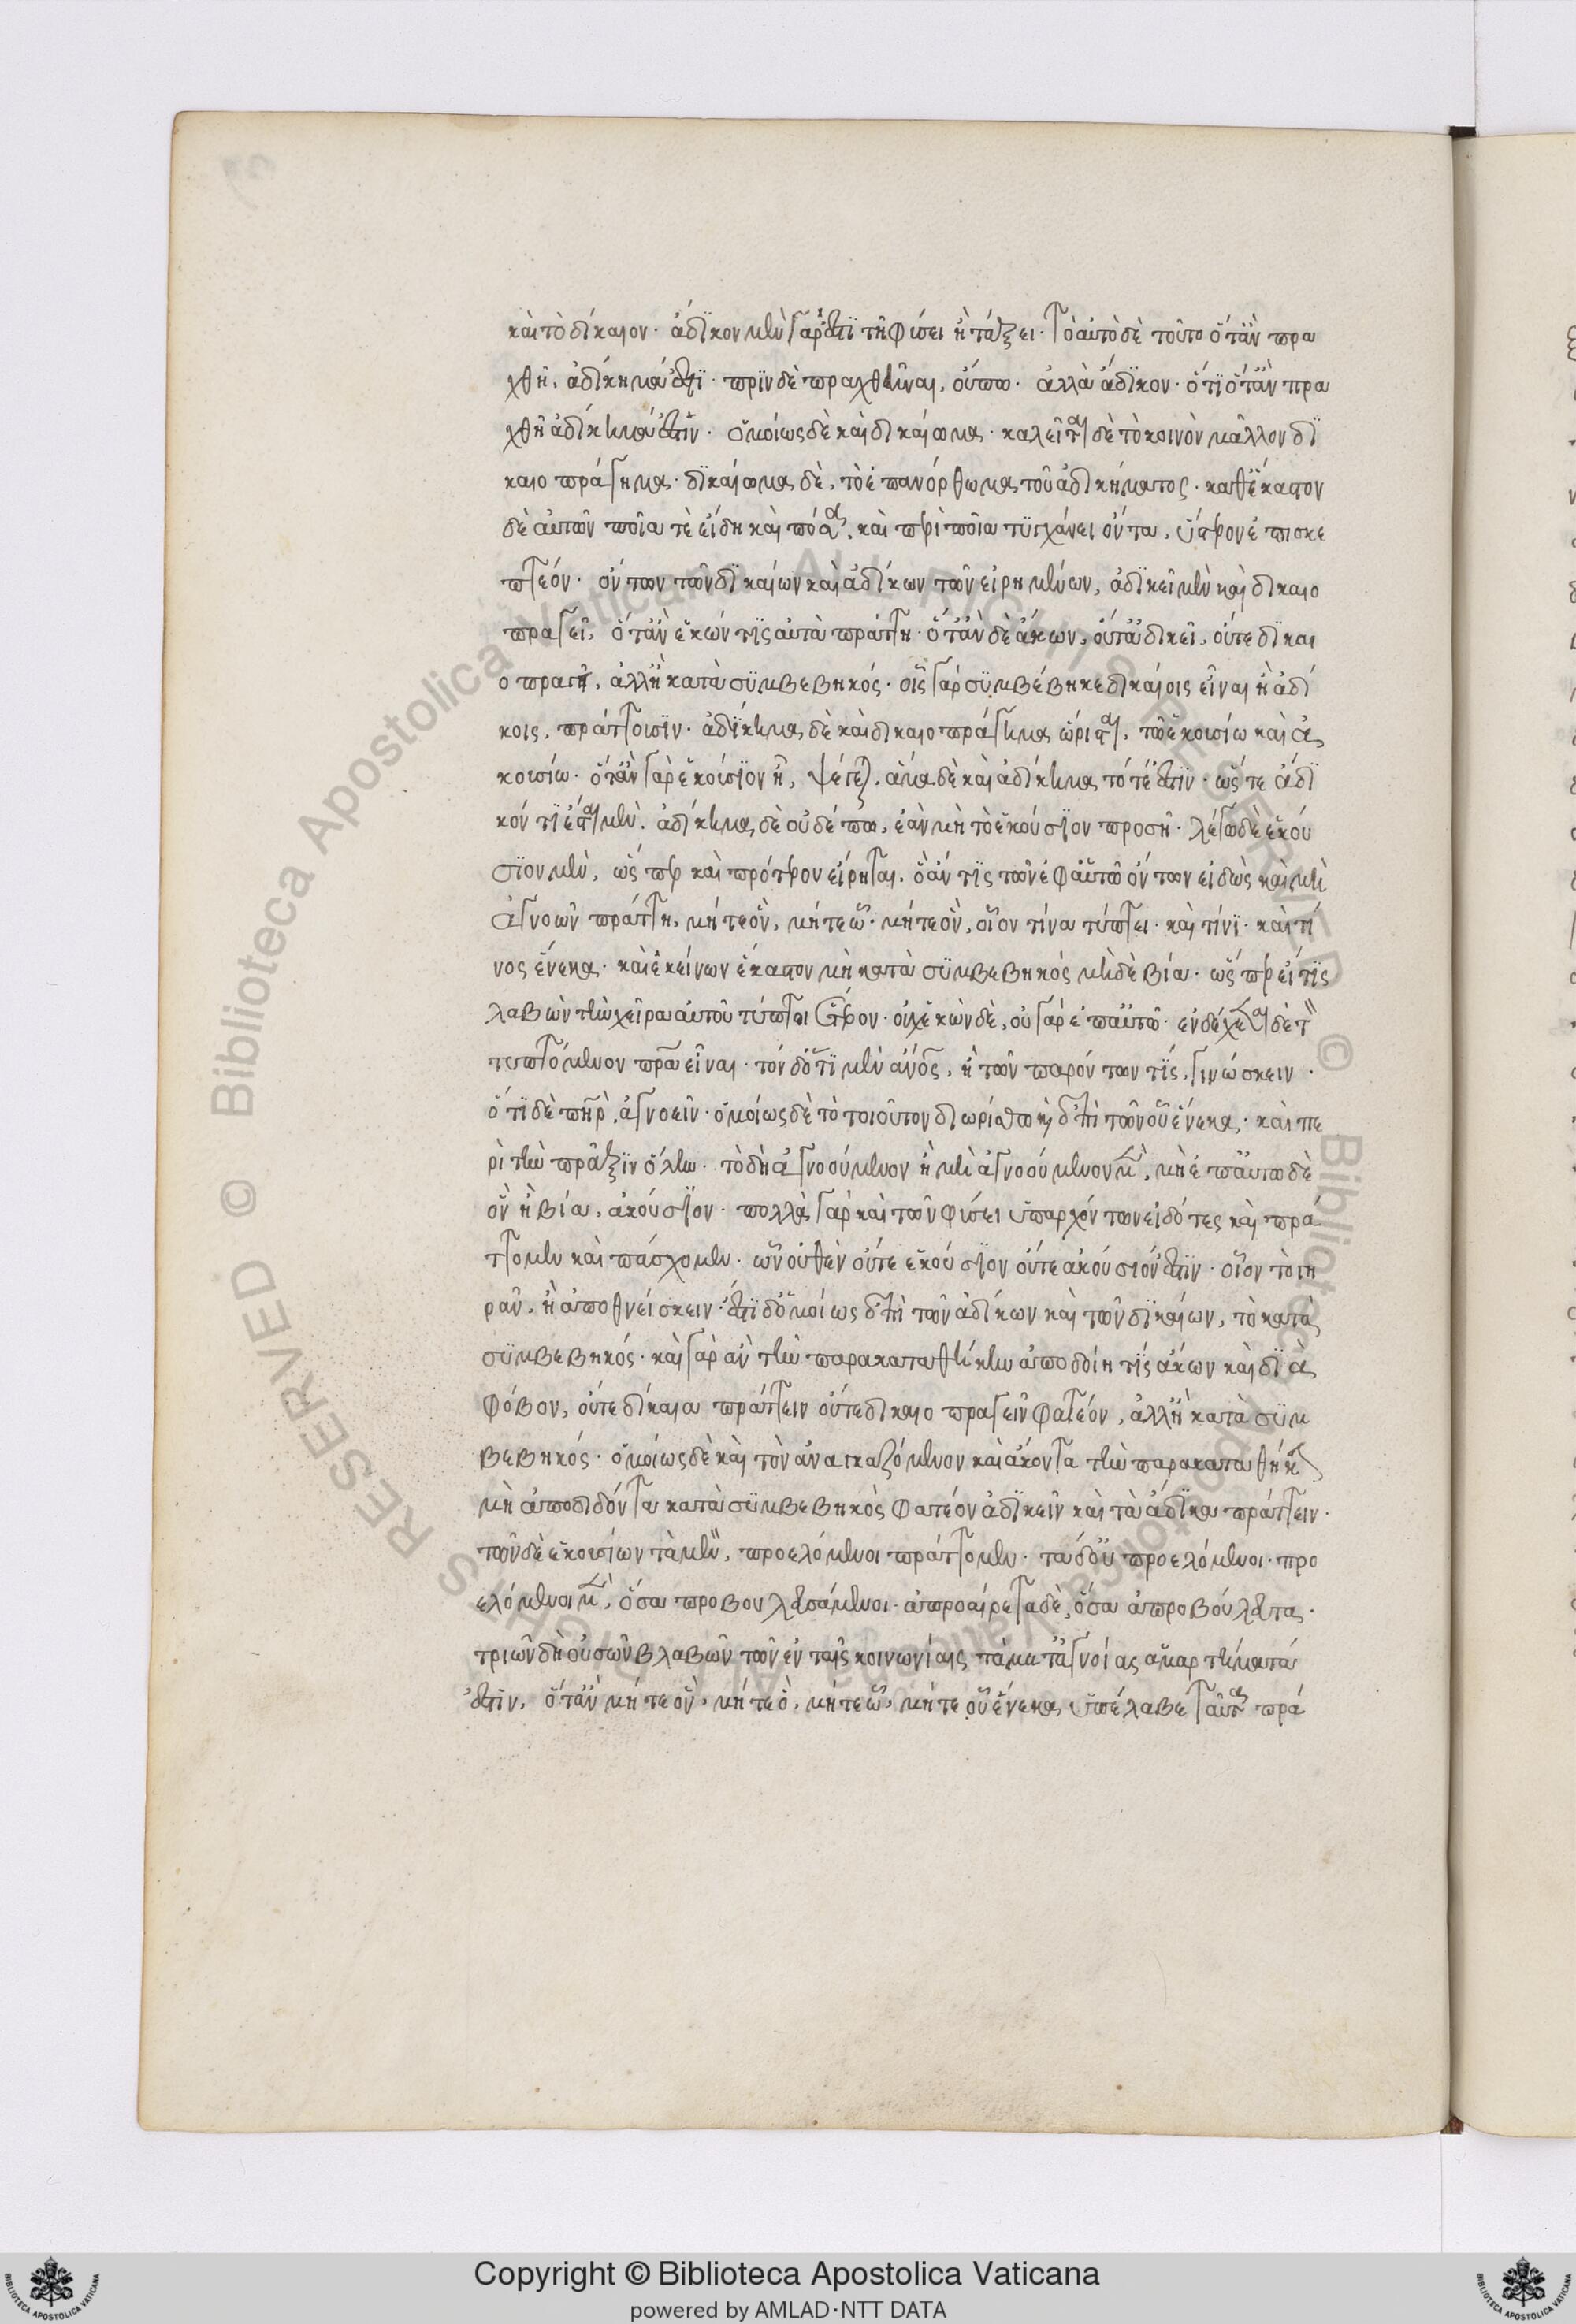 καὶ τὸ δίκαιον· ἄδικον μὲν γάρ ἐστι τῇ φύσει ἢ τάξει· τὸ αὐτὸ δὲ τοῦτο ὅταν πρα
χθῇ, ἀδίκημά ἐστι· πρὶν δὲ πραχθῆναι, οὔπω· ἀλλὰ ἄδικον· ὅτι ὅταν πρα
χθῇ ἀδίκημά ἐστιν· ὁμοίως δὲ καὶ δικαίωμα· καλεῖται δὲ τὸ κοινὸν μᾶλλον δι
καιοπράγημα· δικαίωμα δὲ, τὸ ἐπανόρθωμα τοῦ ἀδικήματος· καθέκαστον
δὲ αὐτῶν ποῖα τὲ εἴδη καὶ πόσα, καὶ περὶ ποῖα τυγχάνει ὄντα, ὕστερον ἐπισκε
πτεόν· ὄντων τῶν δικαίων καὶ ἀδίκων τῶν εἰρημένων, ἀδικεῖ μὲν καὶ δικαιο
πραγεῖ, ὅταν ἑκών τις αὐτὰ πράττη· ὅταν δὲ ἄκων, οὔτ ἀδικεῖ, οὔτε δικαι
οπραγεῖ, ἀλλ ἢ κατὰ συμβεβηκός· οἷς γὰρ συμβέβηκε δικαίοις εἶναι ἢ ἀδί
κοις, πράττουσιν· ἀδίκημα δὲ καὶ δικαιοπράγημα ὥρισται, τῷ ἑκουσίω καὶ ἀ
κουσίω· ὅταν γὰρ ἑκούσιον ᾖ, ψέγεται, ἅμα δὲ καὶ ἀδίκημα τότέ ἐστιν· ὥστε ἄδι
κόν τι ἔσται μὲν. ἀδίκημα δὲ οὐδέπω, ἐὰν μὴ τὸ ἑκούσιον προσῇ· λέγω δὲ ἑκού
σιον μὲν, ὥσπερ καὶ πρότερον εἴρηται, ὃ ἄν τις τῶν ἐφ αὑτῷ ὄντων εἰδὼς καὶ μὴ
ἀγνοῶν πράττη, μήτε ὃν, μήτε ᾧ· μήτε ὃν, οἷον τίνα τύπτει· καὶ τίνι· καὶ τί
νος ἕνεκα· καὶ ἐκείνων ἕκαστον μὴ κατὰ συμβεβηκός μὴδὲ βία· ὥσπερ εἴ τις
λαβὼν τὴν χεῖρα αὐτοῦ τύπτοι ἕτερον· οὐχ ἑκὼν δὲ, οὐ γὰρ ἐπ αὐτῷ· ἐνδέχεται δὲ τὸν
τυπτόμενον πατέρα εἶναι· τόν δ ὅτι μὲν ἄνθρωπος, ἢ τῶν παρόντων τίς, γινώσκειν·
ὅτι δὲ πατὴρ, ἀγνοεῖν· ὁμοίως δὲ τὸ τοιοῦτον διωρίσθω καὶ ἐπὶ τῶν οὗ ἕνεκα· καὶ πε
ρὶ τὴν πρᾶξιν ὅλην· τὸ δὴ ἀγνοούμενον ἢ μὴ ἀγνοούμενον μὲν, μὴ ἐπ αὐτω δὲ
ὂν ἢ βία, ἀκούσιον· πολλὰ γὰρ καὶ τῶν φύσει ὑπαρχόντων εἰδότες καὶ πρά
ττομεν καὶ πάσχομεν· ὧν οὐθὲν οὔτε ἑκούσιον οὔτε ἀκούσιόν ἐστιν· οἷον τὸ γη
ρᾶν, ἢ ἀποθνείσκειν· ἔστι δ ὁμοίως ἐπὶ τῶν ἀδίκων καὶ τῶν δικαίων, τὸ κατὰ
συμβεβηκός· καὶ γὰρ ἂν τὴν παρακαταθήκην ἀποδοίη τίς ἄκων καὶ διὰ
φόβον, οὔτε δίκαια πράττειν οὔτε δικαιοπραγεῖν φατέον, ἀλλ ἢ κατὰ συμ
βεβηκός· ὁμοίως δὲ καὶ τὸν ἀναγκαζόμενον καὶ ἄκοντα τὴν παρακαταθήκην
μὴ ἀποδιδόντα κατὰ συμβεβηκὸς φατέον ἀδικεῖν καὶ τὰ ἄδικα πράττειν·
τῶν δὲ ἑκουσίων τὰ μὲν, προελόμενοι πράττομεν· τὰ δ οὐ προελόμενοι· προ
ελόμενοι μὲν, ὅσα προβουλευσάμενοι· ἀπροαίρετα δὲ, ὅσα ἀπροβούλευτα·
τριῶν δὴ οὐσῶν βλαβῶν τῶν ἐν ταῖς κοινωνίαις τὰ μετ ἀγνοίας ἁμαρτήματά
ἐστιν, ὅταν μήτε ὃν, μήτε ὃ, μήτε ᾧ, μήτε οὗ ἕνεκα ὑπέλαβε ταῦτα πρά